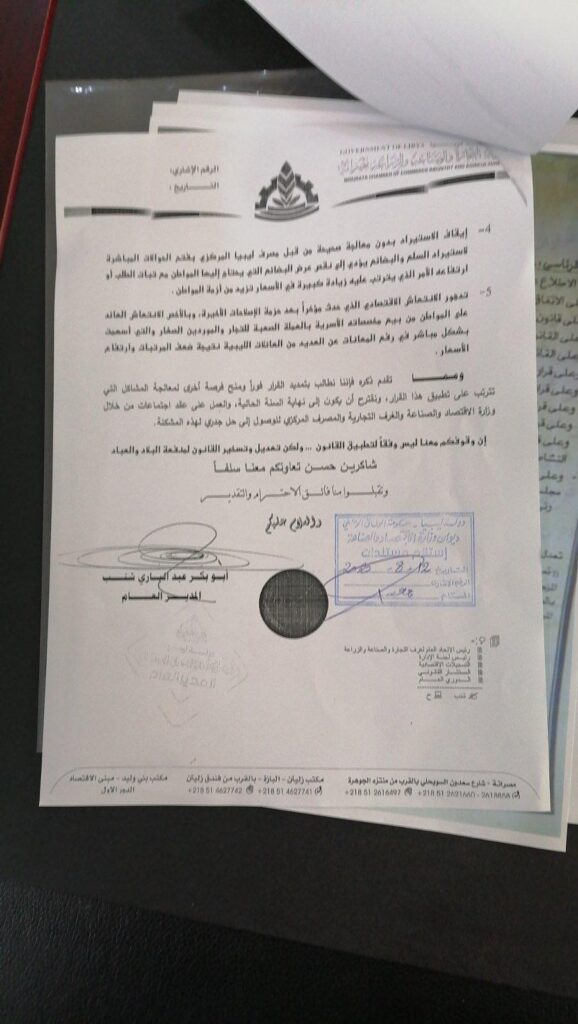 GOVERNMENT OF LIBYA
MISURATA CHAMBER OF COMMERCE INDUSTRY AND AGRICULTURE
الرقم الإشاري:
التاريخ :
4- إيقاف الاستيراد بدون معالجة صحيحة من قبل مصرف ليبيا المركزي بفتح الحوالات المباشرة
لاستيراد السلع والبضائع يؤدي إلى نقص عرض البضائع التي يحتاج إليها المواطن مع ثبات الطلب أو
ارتفاعه الأمر الذي يترتب عليه زيادة كبيرة في الأسعار تزيد من أزمة المواطن .
5- تدهور الانتعاش الاقتصادي الذي حدث مؤخراً بعد حزمة الإصلاحات الأخيرة، وبالأخص الانتعاش العائد
على المواطن من بيع مخصصاته الأسرية بالعملة الصعبة للتجار والموردين الصغار والتي أسهمت
بشكل مباشر في رفع المعانات عن العديد من العائلات الليبية نتيجة ضعف المرتبات وارتفاع
الأسعار .
ومما تقدم ذكره فإننا نطالب بتمديد القرار فوراً ومنح فرصة أخرى لمعالجة المشاكل التي
تترتب على تطبيق هذا القرار، ونقترح أن يكون إلى نهاية السنة الحالية، والعمل على عقد اجتماعات من خلال
وزارة الاقتصاد والصناعة والغرف التجارية والمصرف المركزي للوصول إلى حل جدري لهذه المشكلة.
إن وقوفكم معنا ليس وفقاً لتطبيق القانون ... ولكن تعديل وتسخير القانون لمنفعة البلاد والعباد
شاكرين حسن تعاونكم معنا سلفاً
وتقبلوا منا فائق الاحترام والتقدير
والسلام عليكم
أبو بكر عبد الباري شنب
المدير العام
ديوان وزارة الاقتصاد والصناعة
إستلام مستندات
التاريخ 12-8-2025
رئيس الاتحاد العام لغرف التجارة والصناعة والزراعة
رئيس لجنة الإدارة
التسجيلات الاقتصادية
المستشار القانوني
الدوري العام
مصراتة - شارع سعدون السويحلي بالقرب من منتزه الجوهرة
+218 51 2616497
مكتب زليتن - البازة - بالقرب من فندق زليتن
+218 51 4627741
+218 51 4627742
مكتب بني وليد - مبنى الاقتصاد
الدور الأول